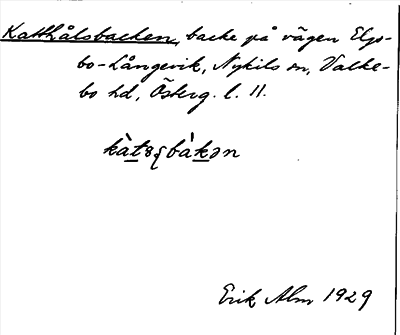 Katthålsbacken, backe på vägen Elgs-
bo-Långevik, Nykils sn, Valke-
bo hd, Österg. l. 11.
Erik Alm 1929